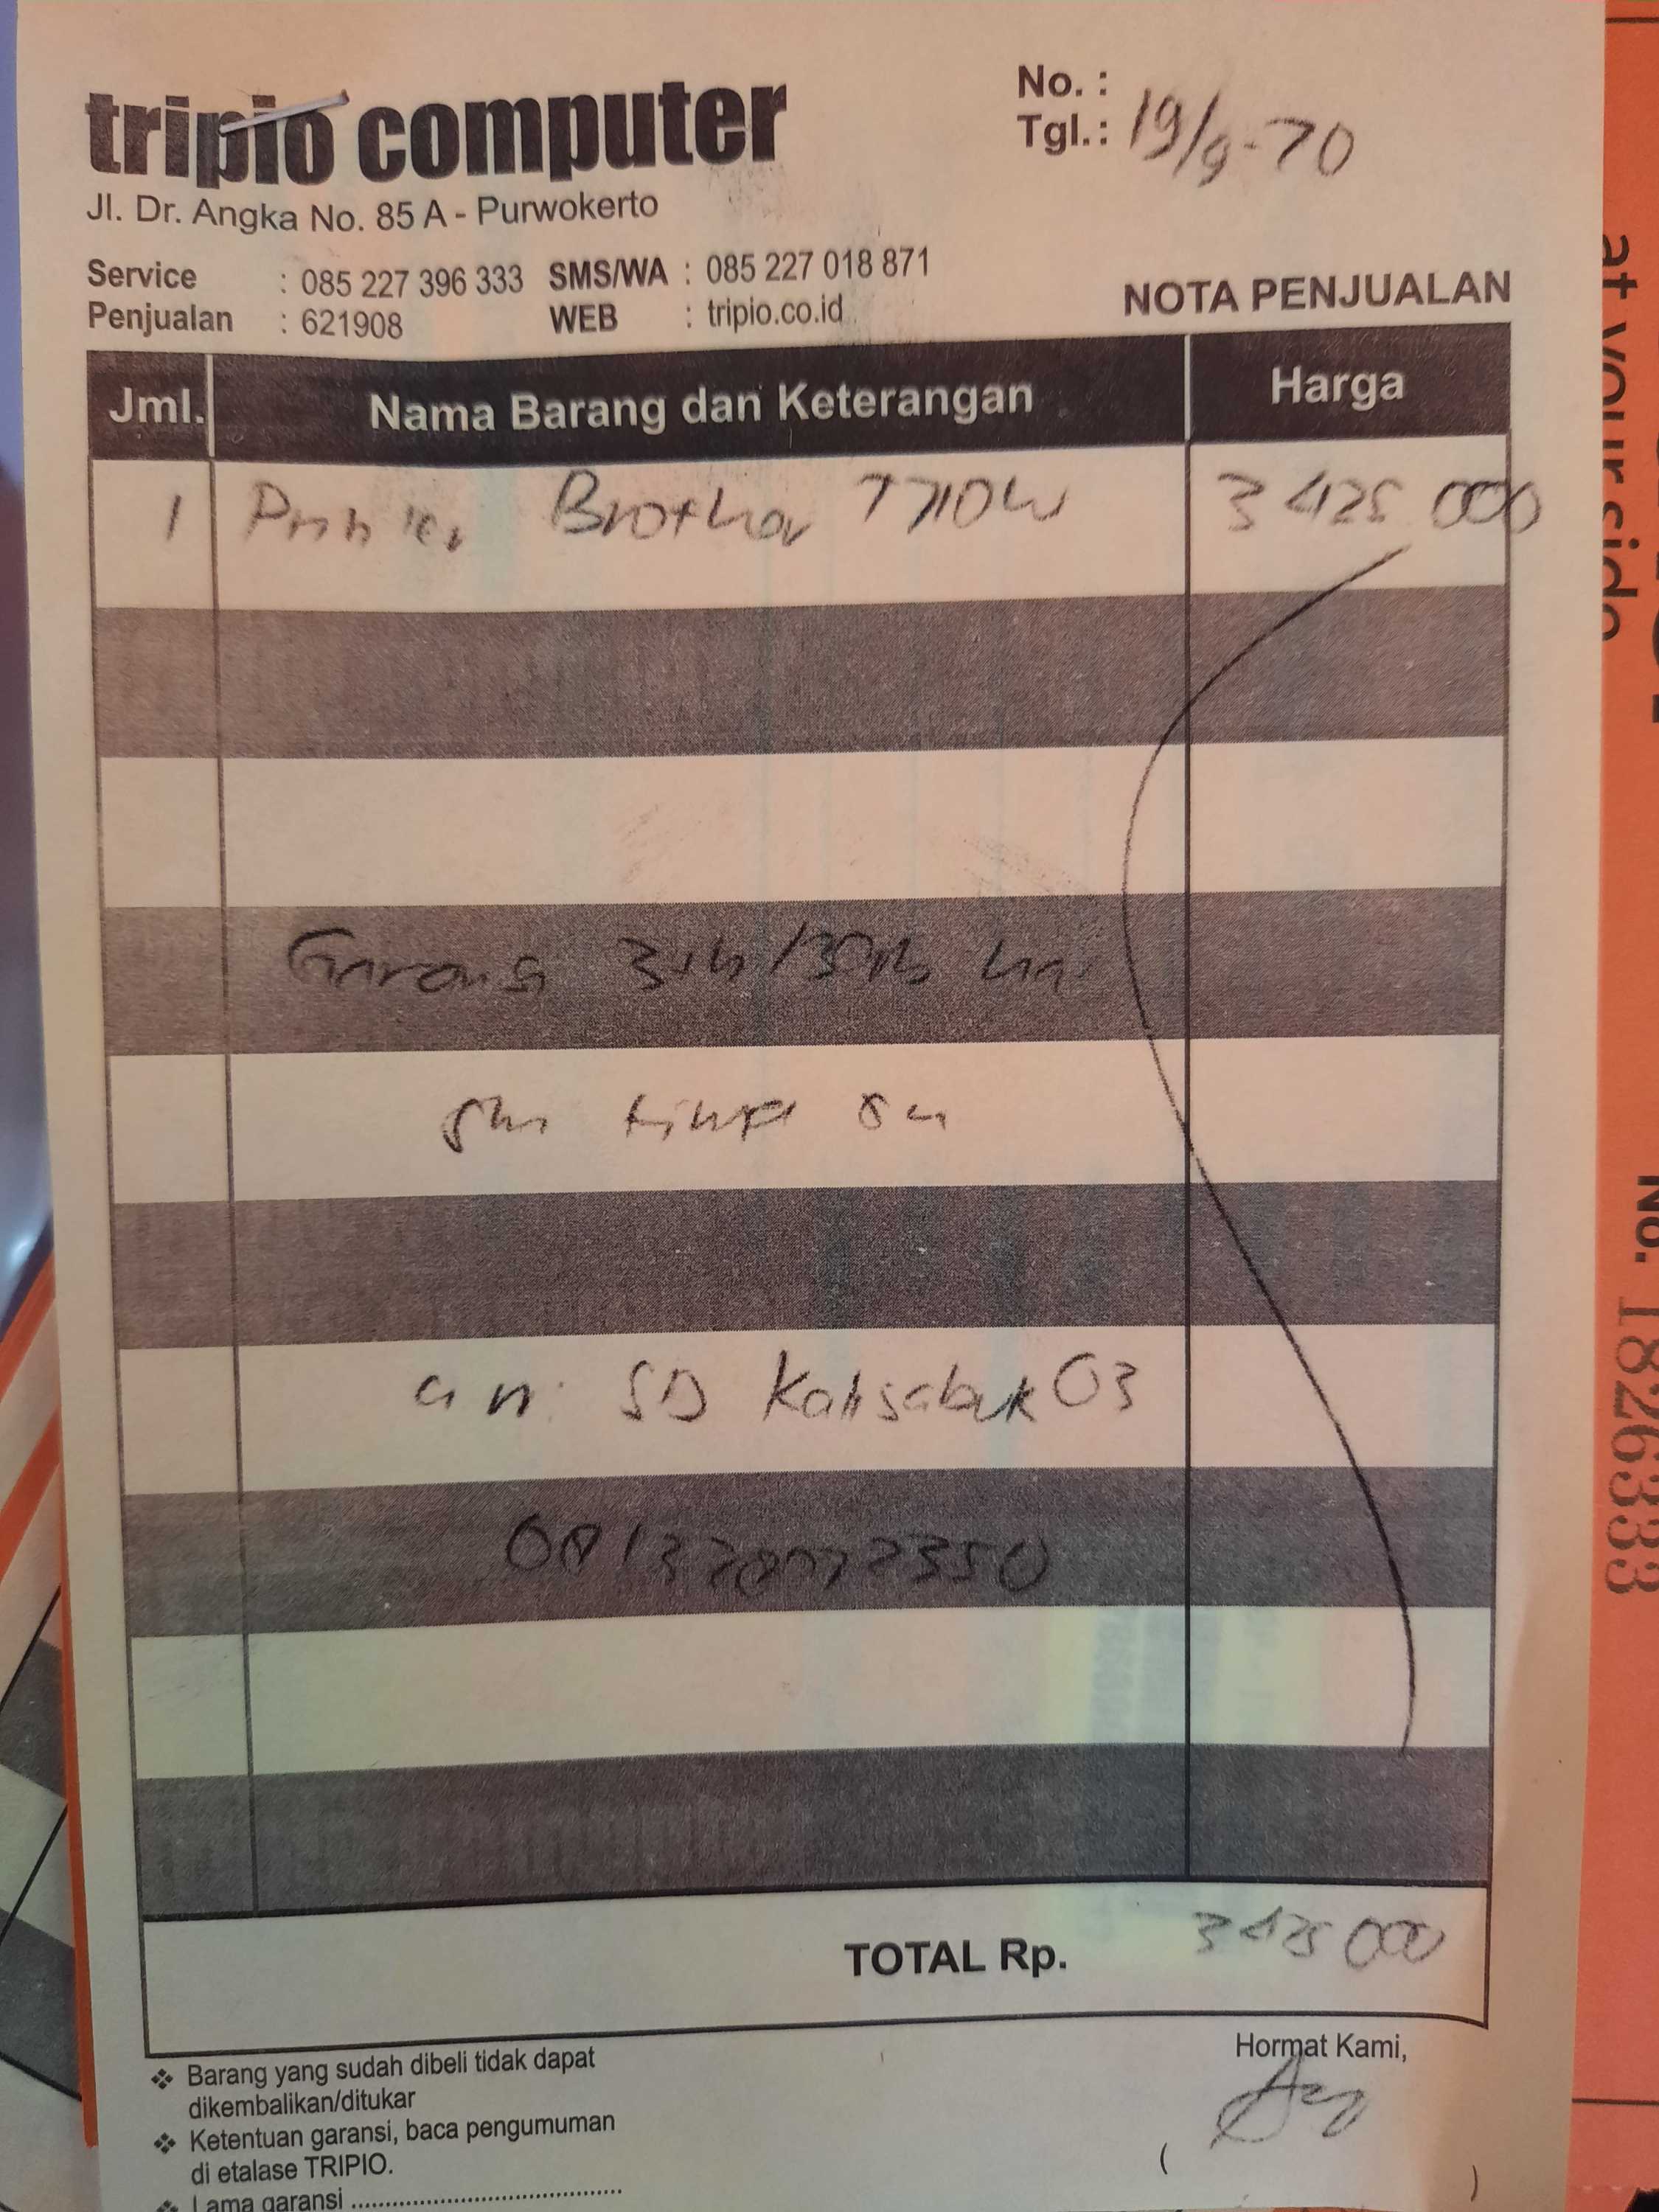 tripio computer
Jl. Dr. Angka No. 85 A - Purwokerto
Service : 085 227 396 333 SMS/WA : 085 227 018 871
Penjualan : 621908 WEB : tripio.co.id
No. :
Tgl.: 19/9-20
NOTA PENJUALAN
Jml. Nama Barang dan Keterangan Harga
1 Printer Brother T710W 3 425 000
Garansi
a n: SD Kalisabuk 03
TOTAL Rp. 3 425 000
Barang yang sudah dibeli tidak dapat
dikembalikan/ditukar
Ketentuan garansi, baca pengumuman
di etalase TRIPIO.
Lama garansi
Hormat Kami,
( )
at your side
No. 1826333